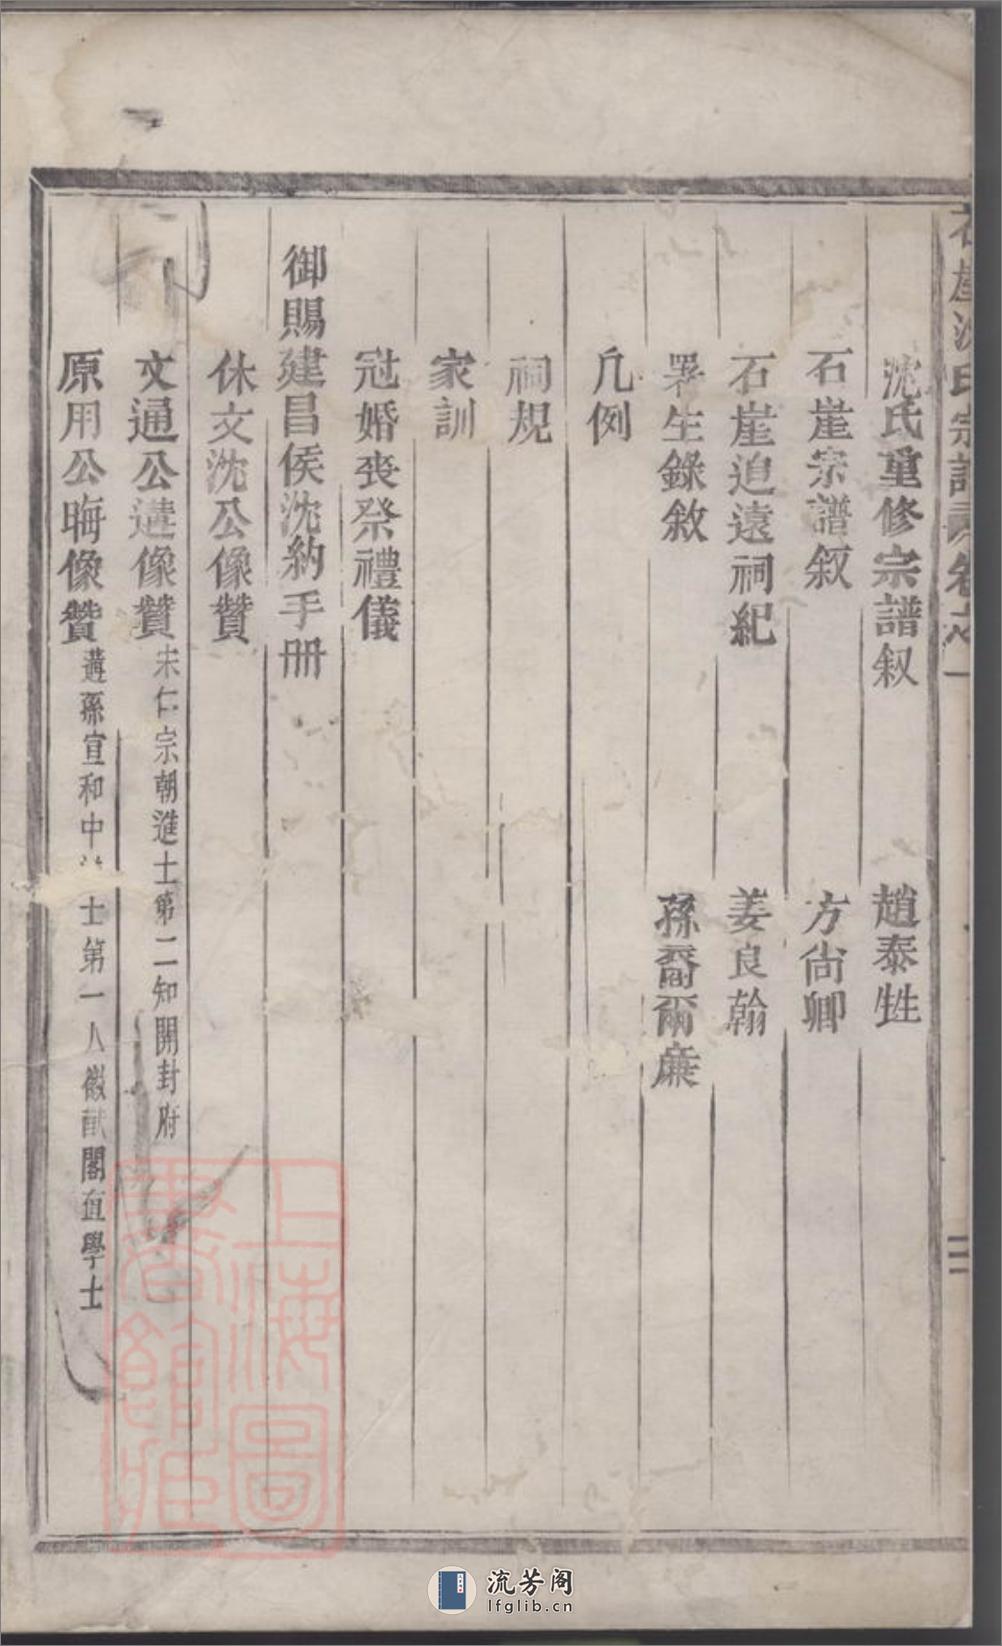 沈氏重修宗譜叙 趙泰甡
石崖宗譜叙 方尚卿
石崖追遠祠紀 姜良翰
畧生錄敘 孫裔爾廉
凡例
祠規
家訓
冠婚喪祭禮儀
御賜建昌侯沈納手冊
休文沈公像贊
文通公遘像贊 宋仁宗朝進士第二知開封府
原用公晦像贊 遘孫宣和中 士第一人徽猷閣直學士
石崖沈氏宗譜 卷之一
二
上海圖書館藏
流芳阁
lfglib.cn